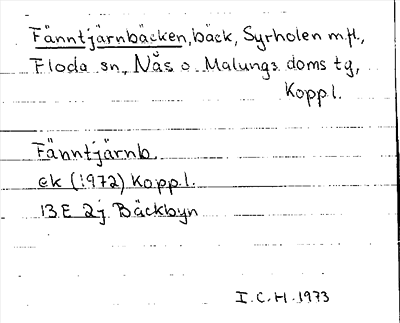 Fänntjärnbäcken, bäck, Syrholen m.fl.,
Floda sn, Nås o. Malungs doms tg,
Koppl.
Fänntjärnb.
ek (1972) Koppl.
13E 2j Bäckbyn
I.C.H. 1973